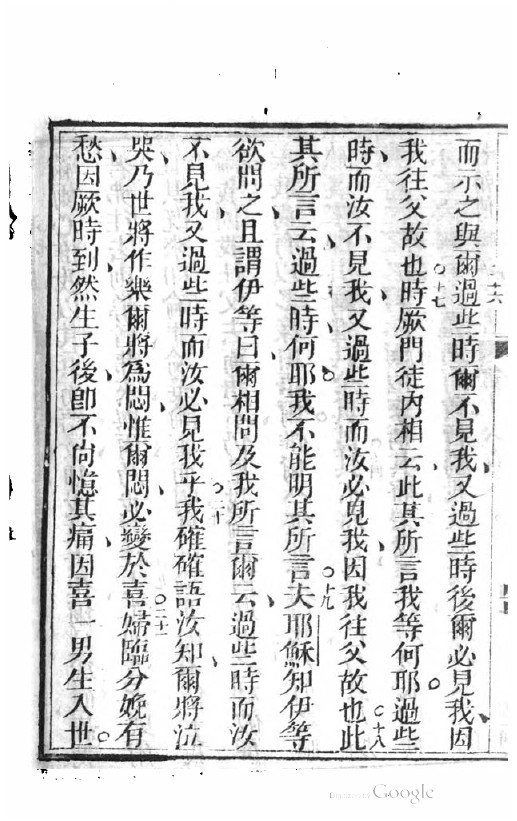 而示之與爾○十六過些時爾不見我又過些時後爾必見我因
我往父故也○十七時厥門徒內相云此其所言我等何耶過些
時而汝不見我又過些時而汝必見我因我往父故也○十八此
其所言云過些時何耶我不能明其所言○十九夫耶穌知伊等
欲問之且謂伊等曰爾相問及我所言爾云過些時而汝
不見我又過些時而汝必見我乎○二十我確確語汝知爾將泣
哭乃世將作樂爾將為悶惟爾悶必變於喜○二十一婦臨分娩有
愁因厥時到然生子後即不尚憶其痛因喜一男生入世
Digitized by Google